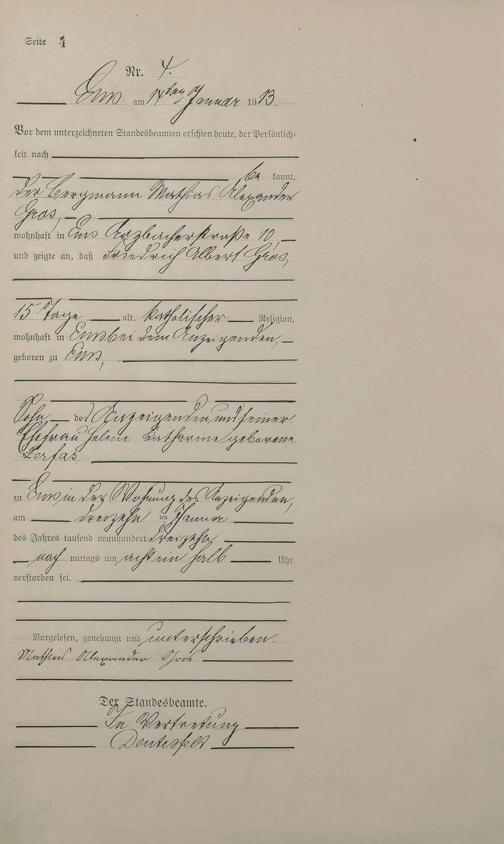 Seite 4
Nr. 4.
Ems am 14ten Januar 1913.
Vor dem unterzeichneten Standesbeamten erschien heute, der Persönlich-
keit nach
be kannt,
der Bergmann Mathias Alexander
Gros,
wohnhaft in Ems Arzbacherstraße 10
und zeigte an, daß Friedrich Albert Gros,
15 Tage alt, katholischer Religion,
wohnhaft in Ems bei dem Anzeigenden,
geboren zu Ems,
Sohn des Anzeigenden und seiner
Ehefrau Helene Katharine geborene
zu Ems in der Wohnung des Anzeigenden,
am dreizehn ten Januar
des Jahres tausend neunhundert dreizehn
nach mittags um acht ein halb Uhr
verstorben sei.
Vorgelesen, genehmigt und unterschrieben.
Mathias Alexander Gros
Der Standesbeamte.
In Vertretung